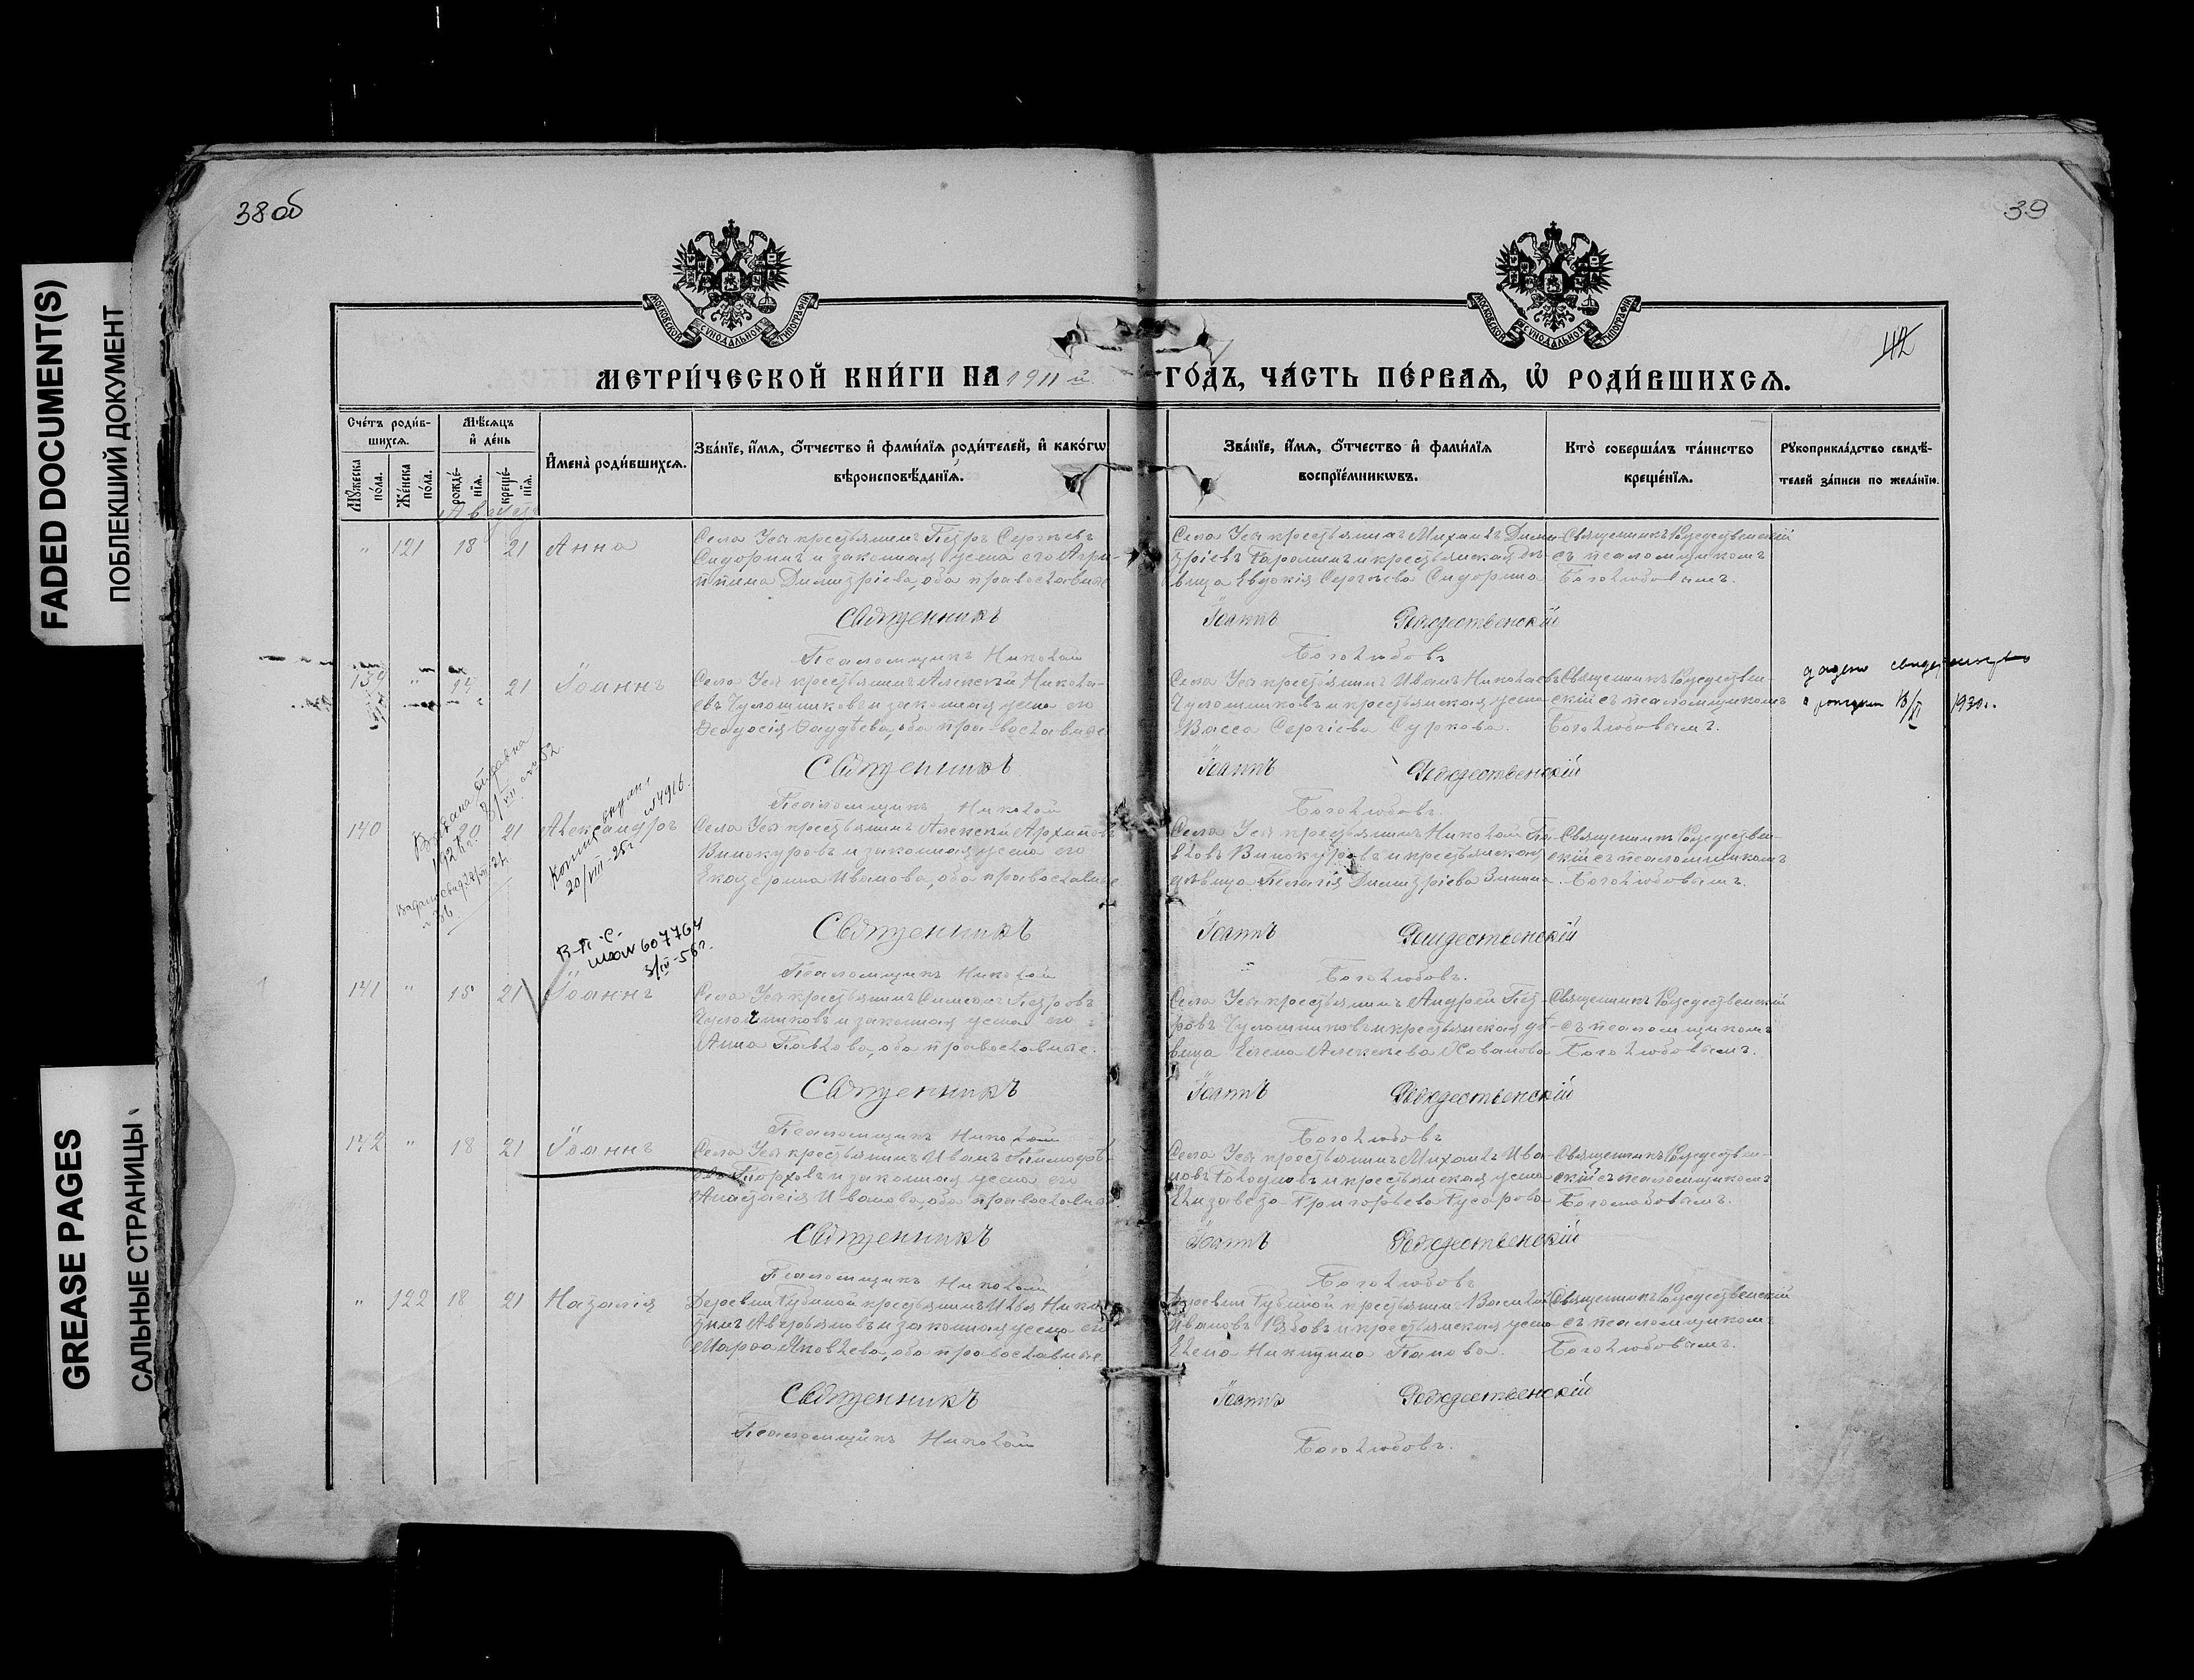 FADED DOCUMENT(S)
ПОБЛЕКШИЙ ДОКУМЕНТ
GREASE PAGES
САЛЬНЫЕ СТРАНИЦЫ
38 об
39
42
МОСКОВСКОЙ СУНОДАЛЬНОЙ ТИПОГРАФІИ
МОСКОВСКОЙ СУНОДАЛЬНОЙ ТИПОГРАФІИ
МЕТРИ́ЧЕСКОЙ КНИ́ГИ НА 1911 й ГО́ДЪ, ЧА́СТЬ ПЕ́РВАЯ, Ѡ҆ РОДИ́ВШИХСЯ.
Сче́тъ роди́в-
шихся.
Мꙋ́жеска по́ла.
Же́нска по́ла.
Мѣ́сяцъ
и҆ де́нь
рожде́-
нїя.
креще́-
нїя.
И҆мена̀ роди́вшихся.
Зва́нїе, и҆́мя, ѻ҆́тчество и҆ фами́лїя роди́телей, и҆ како́гѡ
вѣроисповѣ́данїя.
Зва́нїе, и҆́мя, ѻ҆́тчество и҆ фами́лїя
воспрїе́мникѡвъ.
Кто̀ соверша́лъ та́инство
креще́нїя.
Рꙋкоприкла́дство свидѣ́-
телей за́писи по жела́нїю.
Августъ
" 121 18 21 Анна
Села Усъ крестьянинъ Петръ Сергѣевъ
Сидоринъ и законная жена его Агри-
пина Димитріева, оба православные
Села Усъ крестьянинъ Михаилъ Дими-
тріевъ и крестьянская дѣ-
вица Евдокія Сергѣева Сидорина
Священникъ Рождественскій
съ псаломщикомъ
Боголюбовымъ.
Священникъ Іоаннъ Рождественскій
Псаломщикъ Николай Боголюбовъ
139 " 21 Іоаннъ
Села Усъ крестьянинъ Алексѣй Никола-
евъ Чумошниковъ и законная жена его
Ѳеодосія Ѳаддѣева, оба православные
Села Усъ крестьянинъ Иванъ Николаевъ
Чумошниковъ и крестьянская жена
Васса Сергіева Суркова.
Священникъ Рождествен-
скій съ псаломщикомъ
Боголюбовымъ.
1930г.
Священникъ Іоаннъ Рождественскій
Псаломщикъ Николай Боголюбовъ.
Выдана справка
20/VIII-25г. №4916.
140 20 21 Александръ
Села Усъ крестьянинъ Алексѣй Архиповъ
Винокуровъ и законная жена его
Екатерина Иванова, оба православные
Села Усъ крестьянинъ Николай Па-
вловъ Винокуровъ и крестьянская
дѣвица Пелагія Димитріева Зинина.
Священникъ Рождествен-
скій съ псаломщикомъ
Боголюбовымъ.
Священникъ Іоаннъ Рождественскій
Псаломщикъ Николай Боголюбовъ.
№ 607764
3/IV-56г.
141 " 15 21 Іоаннъ
Села Усъ крестьянинъ Симеонъ Петровъ
Чумошниковъ и законная жена его
Анна Павлова, оба православные.
Села Усъ крестьянинъ Андрей Пет-
ровъ Чумошниковъ и крестьянская дѣ-
вица Елена Алексѣева
Священникъ Рождественскій
съ псаломщикомъ
Боголюбовымъ.
Священникъ Іоаннъ Рождественскій
Псаломщикъ Николай Боголюбовъ
142 " 18 21 Іоаннъ
Села Усъ крестьянинъ Иванъ
и законная жена его
Анастасія Иванова, оба православные
Села Усъ крестьянинъ Михаилъ Ива-
новъ и крестьянская жена
Елизавета Григорьева Гусарова
Священникъ Рождествен-
скій съ псаломщикомъ
Боголюбовымъ.
Священникъ Іоаннъ Рождественскій
Псаломщикъ Николай Боголюбовъ
" 122 18 21 Наталія
Деревни Губиной крестьянинъ Илья Ники-
тинъ Аверьяновъ и законная жена его
Марѳа Яковлева, оба православные
Деревни Губиной крестьянинъ Василій
Ивановъ и крестьянская жена
Елена Никитина Панова.
Священникъ Рождественскій
съ псаломщикомъ
Боголюбовымъ.
Священникъ Іоаннъ Рождественскій
Псаломщикъ Николай Боголюбовъ.